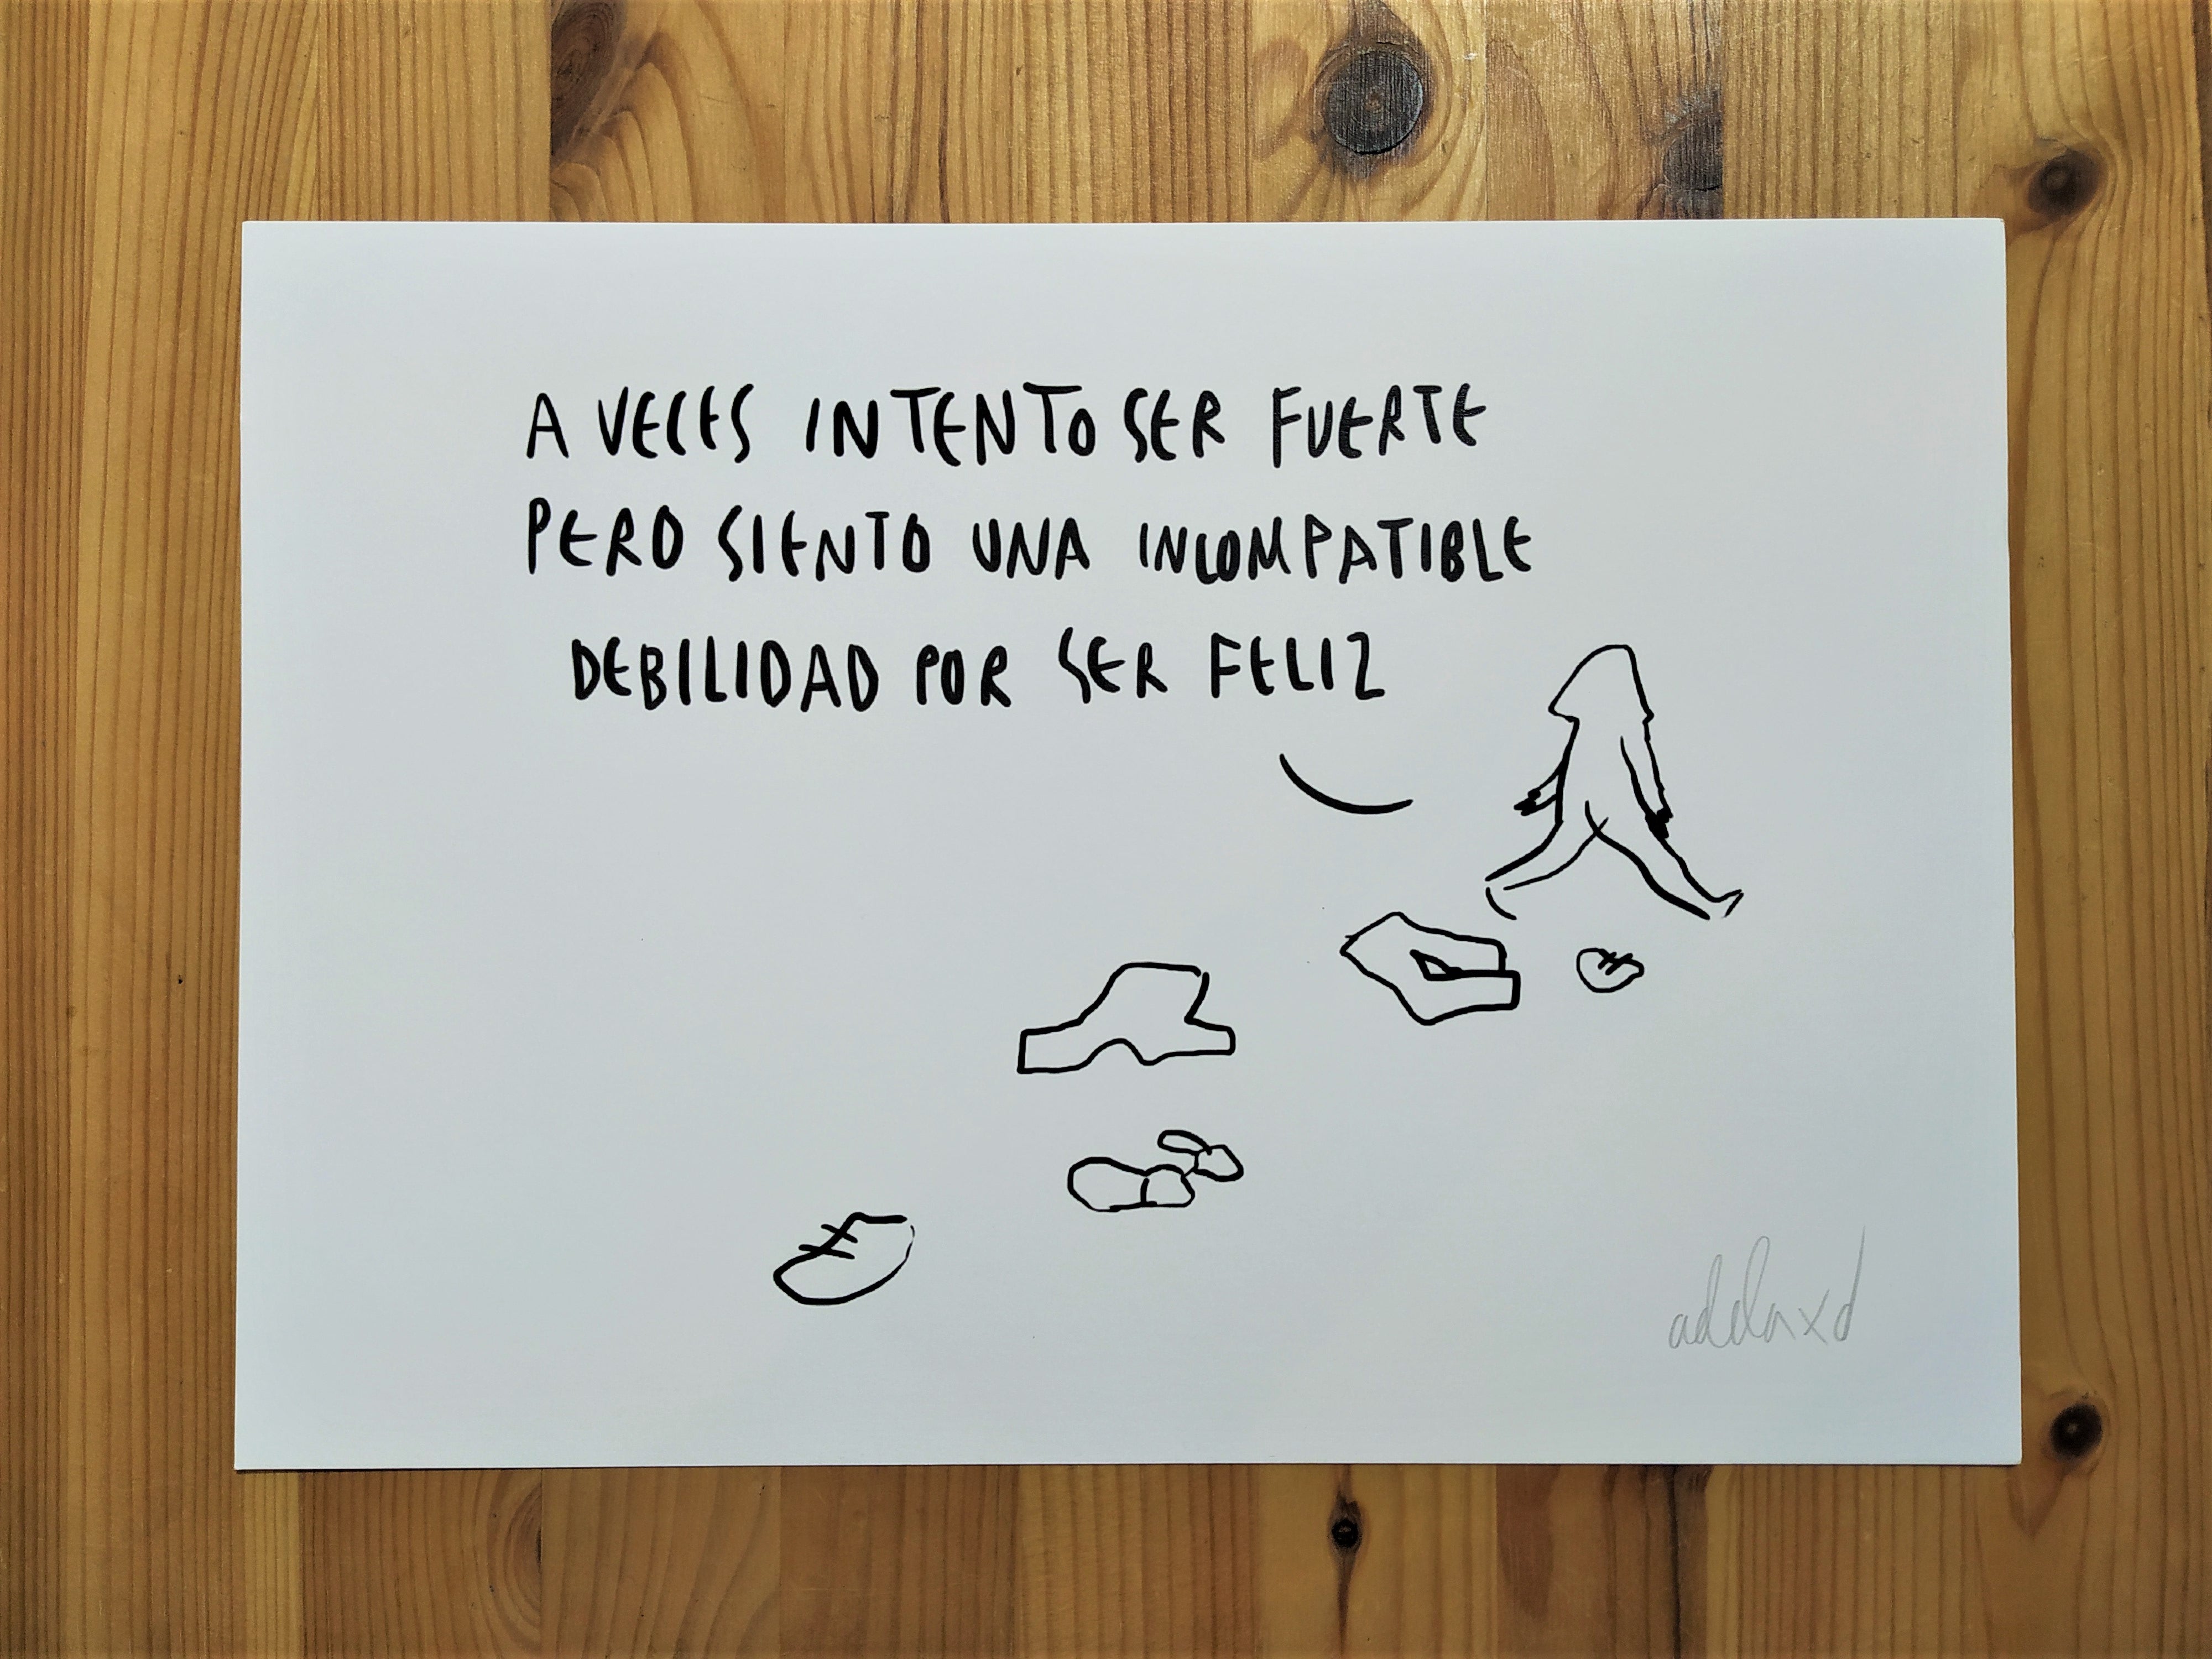 A VECES INTENTO SER FUERTE
PERO SIENTO UNA INCOMPATIBLE
DEBILIDAD POR SER FELIZ
addaxd